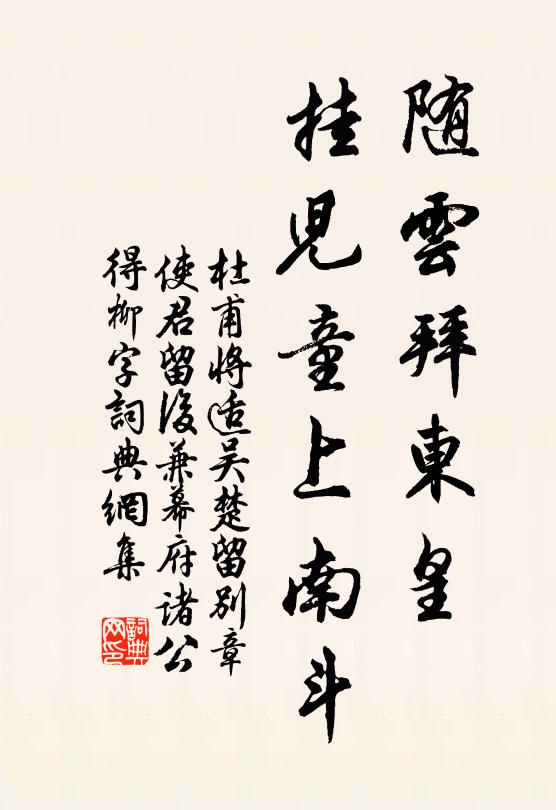 随雲拜東皇
挂兒童上南斗
杜甫將适吴楚留别章
使君留後兼幕府諸公
得柳字詞典網集
詞典
网印